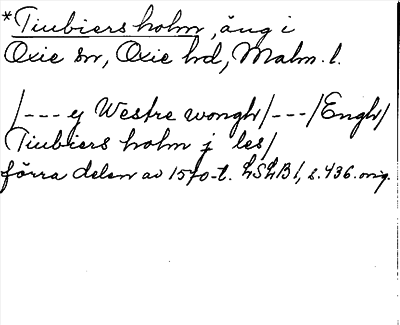 *Tiubiers holm, äng i
Oxie sn, Oxie hd, Malm. l.
/--- ej Westre wongh/---/Engh/
Tiubiers holm j les/
förra delen av 1570-t. LSLB 1, s. 436. orig.